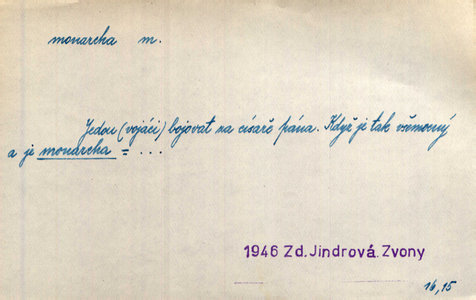 monarcha m.
Jedou (vojáci) bojovat na císaře pána. Když je tak všemocný
a je monarcha = ...
1946 Zd. Jindrová. Zvony
16,15